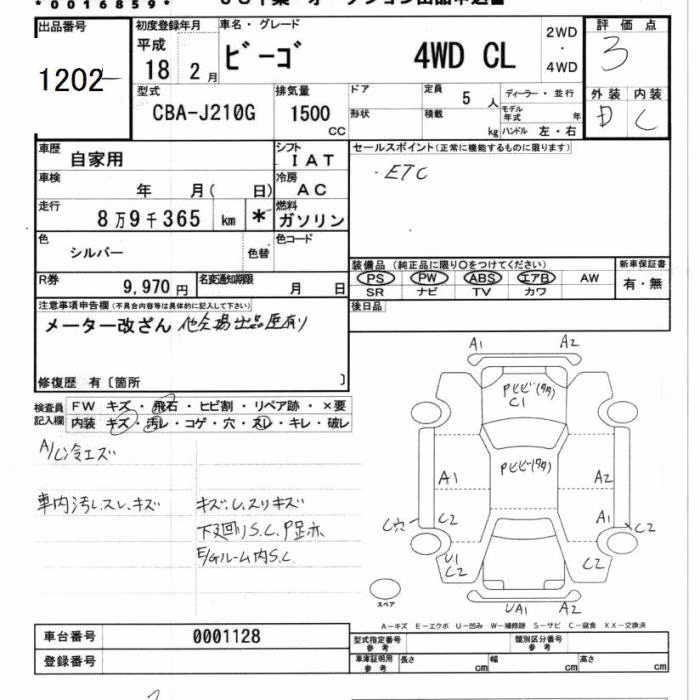 *0016859*
出品番号
1202
初度登録年月
平成
18 2月
車名・グレード
ビーゴ 4WD CL
2WD
・
4WD
評価点
3
外装 内装
D C
型式
CBA-J210G
排気量
1500
CC
ドア
形状
定員
5 人
積載
kg
ディーラー・並行
モデル年式 年
ハンドル 左・右
車歴
自家用
シフト
IAT
セールスポイント(正常に機能するものに限ります)
・ETC
車検
年 月( 日)
冷房
AC
走行
8万9千365 km *
燃料
ガソリン
色
シルバー
色替
色コード
R券
9,970円
名変通知期限
月 日
装備品 (純正品に限り○をつけてください)
PS PW ABS エアB AW
SR ナビ TV カワ
新車保証書
有・無
後日品
注意事項申告欄(不具合内容等は具体的に記入して下さい)
メーター改ざん 他会場出品歴有り
修復歴 有〔箇所 〕
検査員記入欄
FW キズ・飛石・ヒビ割・リペア跡・×要
内装 キズ・汚レ・コゲ・穴・スレ・キレ・破レ
A/C冷エズ
車内汚レスレキズ
キズ、ムスリキズ
下廻りS.C.
E/Gルーム内S.C
A1 A2
C1
A1 A2
C2 A1
C穴 C2
U1
C2 C2
UA1 A2
スペア
A-キズ E-エクボ U-凹み W-補修跡 S-サビ C-腐食 XX-交換済
車台番号
0001128
登録番号
型式指定番号
参考
類別区分番号
参考
車庫証明用
参考
長さ cm 幅 cm 高さ cm